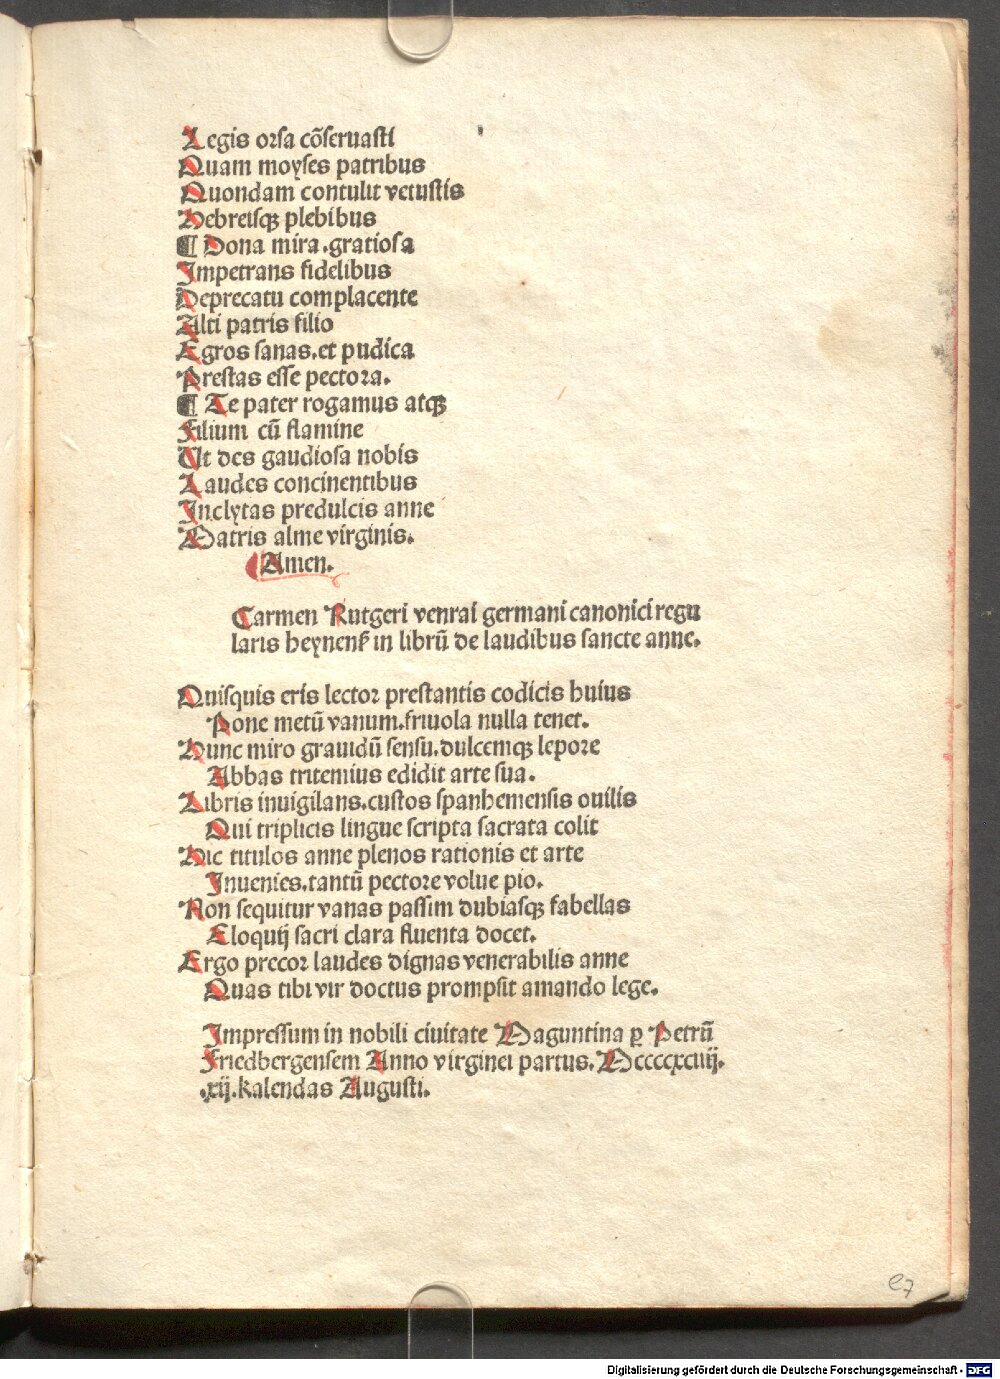 Legis orsa cõseruasti
Quam moyses patribus
Quondam contulit vetustis
Hebreisqꝫ plebibus
¶ Dona mira.gratiosa
Impetrans fidelibus
Deprecatu complacente
Alti patris filio
Egros sanas.et pudica
Prestas esse pectora.
¶ Te pater rogamus atqꝫ
Filium cũ flamine
Ut des gaudiosa nobis
Laudes concinentibus
Inclytas predulcis anne
Matris alme virginis.
¶ Amen.
Carmen Rutgeri venrai germani canonici regu
laris heynenꝭ in librũ de laudibus sancte anne.
Quisquis eris lector prestantis codicis huius
Pone metũ vanum.friuola nulla tenet.
Hunc miro grauidũ sensu.dulcemqꝫ lepore
Abbas tritemius edidit arte sua.
Libris inuigilans.custos spanhemensis ouilis
Qui triplicis lingue scripta sacrata colit
Hic titulos anne plenos rationis et arte
Inuenies.tantũ pectore volue pio.
Non sequitur vanas passim dubiasqꝫ fabellas
Eloquij sacri clara fluenta docet.
Ergo precor laudes dignas venerabilis anne
Quas tibi vir doctus prompsit amando lege.
Impressum in nobili ciuitate Maguntina ꝑ Petrũ
Friedbergensem Anno virginei partus.Mccccxciiij.
.xij.kalendas Augusti.
e7
Digitalisierung gefördert durch die Deutsche Forschungsgemeinschaft - DFG